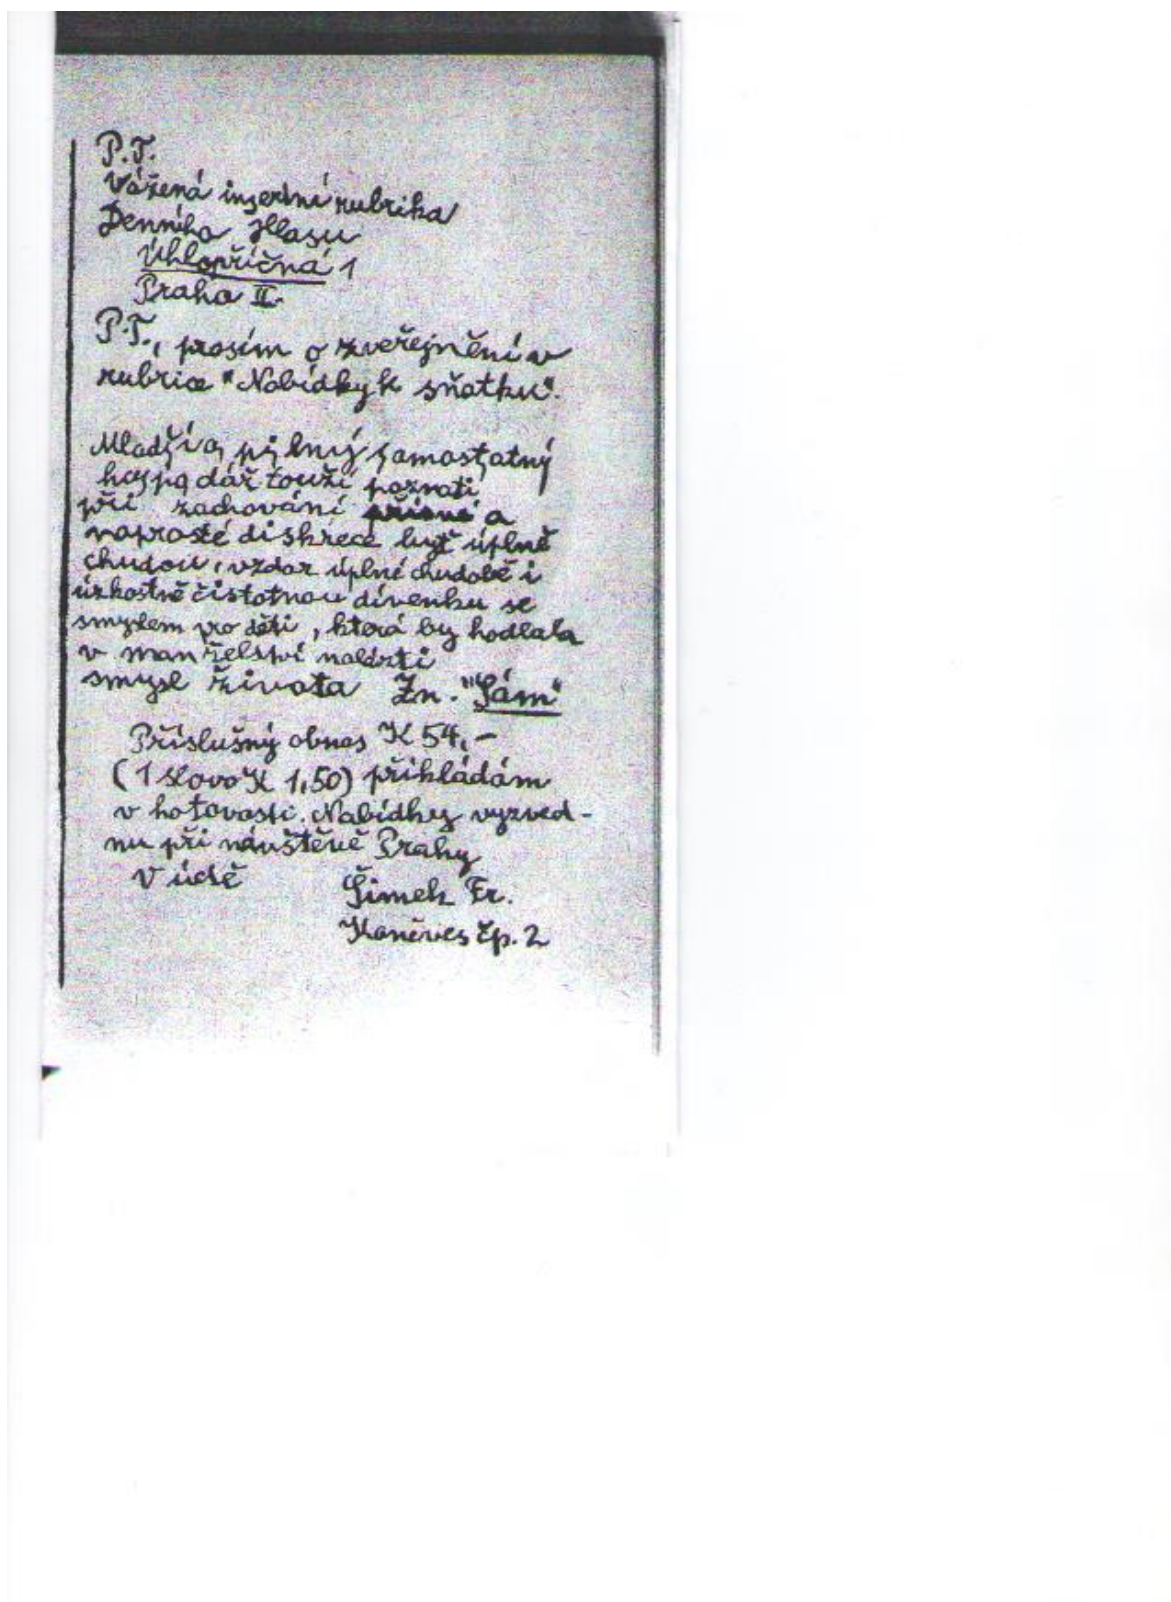 P.T.
Vážená insertní rubrika
Denního Hlasu
Úhlopříčná 1
Praha II.
P.T., prosím o zveřejnění v
rubrice "Nabídky k sňatku".
Mladší a pilný samostatný
hospodář touží poznati
při zachování přísné a
naprosté diskrece byť úplně
chudou, vzdor úplné chudobě i
úzkostně čistotnou dívenku se
smyslem pro děti, která by hodlala
v manželství nalézti
smysl života Zn. "Sám"
Příslušný obnos K 54,-
(1 slovo K 1,50) přikládám
v hotovosti. Nabídky vyzved-
nu při návštěvě Prahy
V úctě
Šimek Fr.
Koněves čp. 2